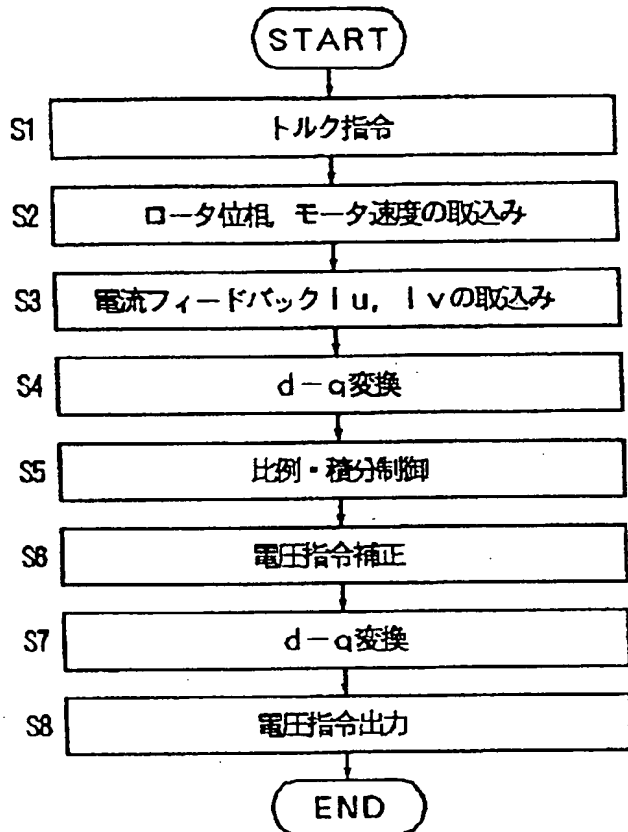 START
S1 トルク指令
S2 ロータ位相,モータ速度の取込み
S3 電流フィードバックIu,Ivの取込み
S4 d-q変換
S5 比例・積分制御
S6 電圧指令補正
S7 d-q変換
S8 電圧指令出力
END